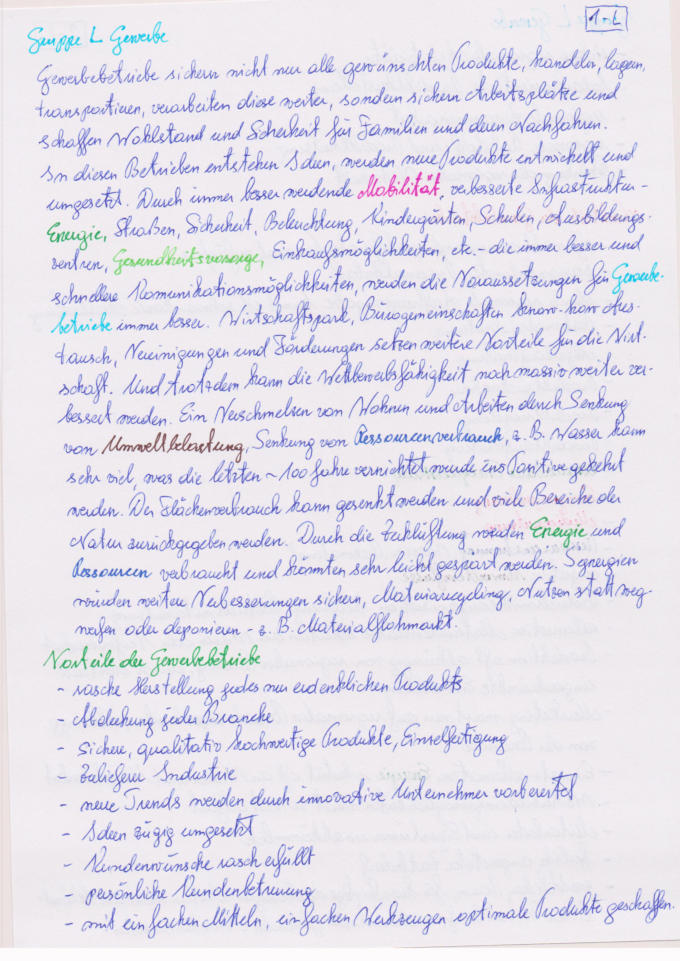 1-L
Gruppe L Gewerbe
Gewerbebetriebe sichern nicht nur alle gewünschten Produkte, handeln, lagern,
transportieren, verarbeiten diese weiter, sondern sichern Arbeitsplätze und
schaffen Wohlstand und Sicherheit für Familien und deren Nachfahren.
In diesen Betrieben entstehen Ideen, werden neue Produkte entwickelt und
umgesetzt. Durch immer besser werdende Mobilität, verbesserte Infrastruktur -
Energie, Straßen, Sicherheit, Beleuchtung, Kindergärten, Schulen, Ausbildungs-
zentren, Gesundheitsvorsorge, Einkaufsmöglichkeiten, etc. - die immer besser und
schnellere Komunikationsmöglichkeiten, werden die Voraussetzungen für Gewerbe-
betriebe immer besser. Wirtschaftspark, Bürogemeinschaften know-how Aus-
tausch, Vereinigungen und Förderungen setzen weitere Vorteile für die Wirt-
schaft. Und trotzdem kann die Wettbewerbsfähigkeit noch massiv weiter ver-
bessert werden. Ein Verschmelzen von Wohnen und Arbeiten durch Senkung
von Umweltbelastung, Senkung von Ressourcenverbrauch, z. B. Wasser kann
sehr viel, was die letzten ~ 100 Jahre vernichtet wurde ins Positive gekehrt
werden. Der Flächenverbrauch kann gesenkt werden und viele Bereiche der
Natur zurückgegeben werden. Durch die Zerklüftung werden Energie und
Ressourcen verbraucht und könnten sehr leicht gespart werden. Synergien
würden weitere Verbesserungen sichern, Materialrecycling, Nutzen statt weg-
werfen oder deponieren - z. B. Materialflohmarkt.
Vorteile der Gewerbebetriebe
- rasche Herstellung jedes nur erdenklichen Produkts
- Abdeckung jeder Branche
- Sichere, qualitativ hochwertige Produkte, Einzelfertigung
- Zulieferer Industrie
- neue Trends werden durch innovative Unternehmer vorbereitet
- Ideen zügig umgesetzt
- Kundenwünsche rasch erfüllt
- persönliche Kundenbetreuung
- mit einfachen Mitteln, einfachen Werkzeugen optimale Produkte geschaffen.